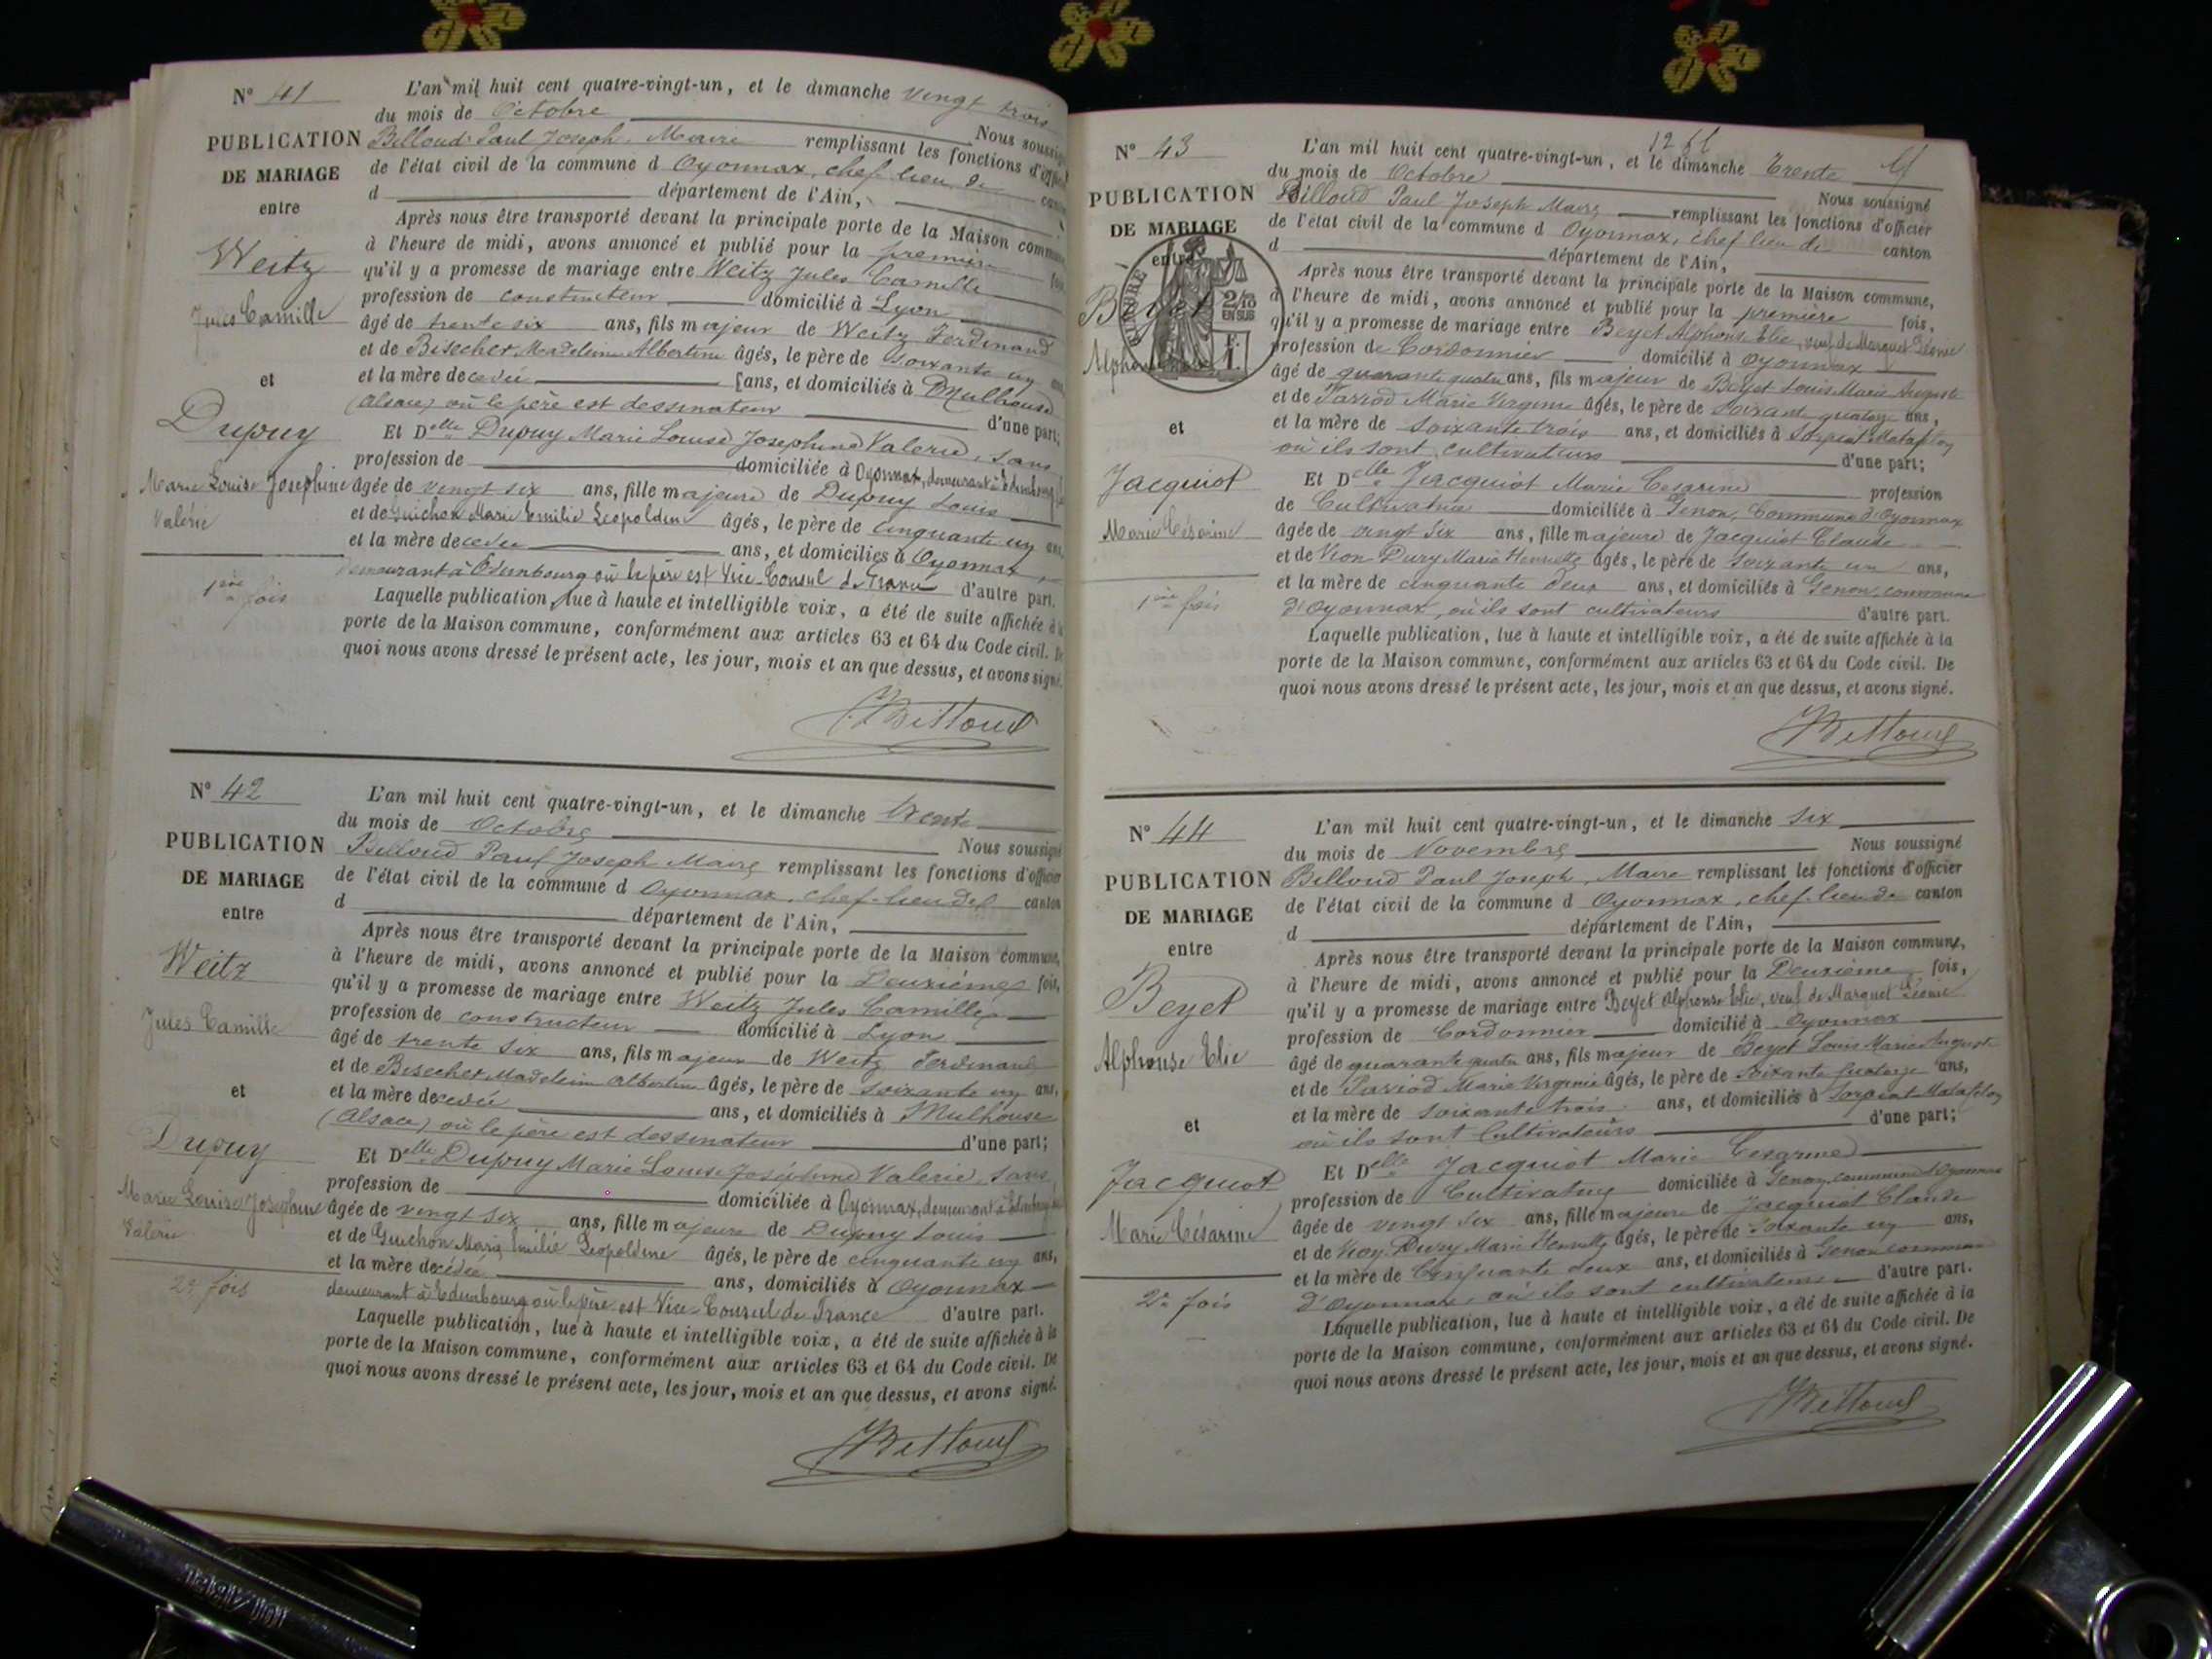 N° 41
PUBLICATION
DE MARIAGE
entre
Weitz
Jules Camille
et
Dupuy
Marie Louise Joséphine
Valérie
1ère fois
L'an mil huit cent quatre-vingt-un, et le dimanche vingt trois
du mois de Octobre Nous soussigné
Billoud Paul Joseph, Maire remplissant les fonctions d'officier
de l'état civil de la commune d Oyonnax, chef lieu de canton
d département de l'Ain,
Après nous être transporté devant la principale porte de la Maison commune
à l'heure de midi, avons annoncé et publié pour la première fois,
qu'il y a promesse de mariage entre Weitz Jules Camille
profession de constructeur domicilié à Lyon
âgé de trente six ans, fils majeur de Weitz Ferdinand
et de Bisecher Madeleine Albertine âgés, le père de soixante un ans
et la mère decedée ans, et domiciliés à Mulhouse
(Alsace) où le père est dessinateur d'une part;
Et Delle Dupuy Marie Louise Josephine Valerie, sans
profession de domiciliée à Oyonnax, demeurant à
âgée de vingt six ans, fille majeure de Dupuy Louis
et de Guichon Marie Emilie Leopoldine âgés, le père de cinquante un ans,
et la mère decedée ans, et domiciliés à Oyonnax,
demeurant à Edimbourg où le père est Vice-Consul de France d'autre part.
Laquelle publication, lue à haute et intelligible voix, a été de suite affichée à la
porte de la Maison commune, conformément aux articles 63 et 64 du Code civil. De
quoi nous avons dressé le présent acte, les jour, mois et an que dessus, et avons signé.
Billoud
N° 42
PUBLICATION
DE MARIAGE
entre
Weitz
Jules Camille
et
Dupuy
Marie Louise Joséphine
Valérie
2e fois
L'an mil huit cent quatre-vingt-un, et le dimanche trente
du mois de Octobre Nous soussigné
Billoud Paul Joseph Maire remplissant les fonctions d'officier
de l'état civil de la commune d Oyonnax, chef-lieu de canton
d département de l'Ain,
Après nous être transporté devant la principale porte de la Maison commune,
à l'heure de midi, avons annoncé et publié pour la Deuxième fois,
qu'il y a promesse de mariage entre Weitz Jules Camille
profession de constructeur domicilié à Lyon
âgé de trente six ans, fils majeur de Weitz Ferdinand
et de Bisecher Madeleine Albertine âgés, le père de soixante un ans,
et la mère decedée ans, et domiciliés à Mulhouse
(Alsace) où le père est dessinateur d'une part;
Et Delle Dupuy Marie Louise Joséphine Valerie, sans
profession de domiciliée à Oyonnax, demeurant à
âgée de vingt six ans, fille majeure de Dupuy Louis
et de Guichon Marie Emilie Leopoldine âgés, le père de cinquante un ans,
et la mère decédée ans, domiciliés à Oyonnax
demeurant à Edimbourg où le père est Vice-Consul de France d'autre part.
Laquelle publication, lue à haute et intelligible voix, a été de suite affichée à la
porte de la Maison commune, conformément aux articles 63 et 64 du Code civil. De
quoi nous avons dressé le présent acte, les jour, mois et an que dessus, et avons signé.
Billoud
N° 43
PUBLICATION
DE MARIAGE
entre
Beyet
Alphonse
TIMBRE
2/10
EN SUS
1 F.
et
Jacquiot
Marie Césarine
1ère fois
L'an mil huit cent quatre-vingt-un, et le dimanche trente
du mois de Octobre Nous soussigné
Billoud Paul Joseph Maire remplissant les fonctions d'officier
de l'état civil de la commune d Oyonnax, chef lieu de canton
d département de l'Ain,
Après nous être transporté devant la principale porte de la Maison commune,
à l'heure de midi, avons annoncé et publié pour la première fois,
qu'il y a promesse de mariage entre Beyet Alphonse Elie, veuf de Marguet Léonie
profession de Cordonnier domicilié à Oyonnax
âgé de quarante quatre ans, fils majeur de Beyet Louis Marie Auguste
et de Tarrod Marie Virginie âgés, le père de soixante quatorze ans,
et la mère de soixante trois ans, et domiciliés à Sorpiat Matafelon
où ils sont cultivateurs d'une part;
Et Delle Jacquiot Marie Cesarine profession
de Cultivatrice domiciliée à Genon, Commune d'Oyonnax
âgée de vingt six ans, fille majeure de Jacquiot Claude
et de Vion Dury Marie Henriette âgés, le père de soixante un ans,
et la mère de cinquante deux ans, et domiciliés à Genon, commune
d'Oyonnax, où ils sont cultivateurs d'autre part.
Laquelle publication, lue à haute et intelligible voix, a été de suite affichée à la
porte de la Maison commune, conformément aux articles 63 et 64 du Code civil. De
quoi nous avons dressé le présent acte, les jour, mois et an que dessus, et avons signé.
Billoud
N° 44
PUBLICATION
DE MARIAGE
entre
Beyet
Alphonse Elie
et
Jacquiot
Marie Césarine
2e fois
L'an mil huit cent quatre-vingt-un, et le dimanche six
du mois de Novembre Nous soussigné
Billoud Paul Joseph, Maire remplissant les fonctions d'officier
de l'état civil de la commune d Oyonnax, chef-lieu de canton
d département de l'Ain,
Après nous être transporté devant la principale porte de la Maison commune,
à l'heure de midi, avons annoncé et publié pour la Deuxième fois,
qu'il y a promesse de mariage entre Beyet Alphonse Elie, veuf de Marguet Léonie
profession de Cordonnier domicilié à Oyonnax
âgé de quarante quatre ans, fils majeur de Beyet Louis Marie Auguste
et de Tarrod Marie Virginie âgés, le père de soixante quatorze ans,
et la mère de soixante trois ans, et domiciliés à Sorpiat Matafelon
où ils sont Cultivateurs d'une part;
Et Delle Jacquiot Marie Cesarine
profession de Cultivatrice domiciliée à Genon, commune d'Oyonnax
âgée de vingt six ans, fille majeure de Jacquiot Claude
et de Vion Dury Marie Henriette âgés, le père de soixante un ans,
et la mère de Cinquante deux ans, et domiciliés à Genon commune
d'Oyonnax, où ils sont cultivateurs d'autre part.
Laquelle publication, lue à haute et intelligible voix, a été de suite affichée à la
porte de la Maison commune, conformément aux articles 63 et 64 du Code civil. De
quoi nous avons dressé le présent acte, les jour, mois et an que dessus, et avons signé.
Billoud